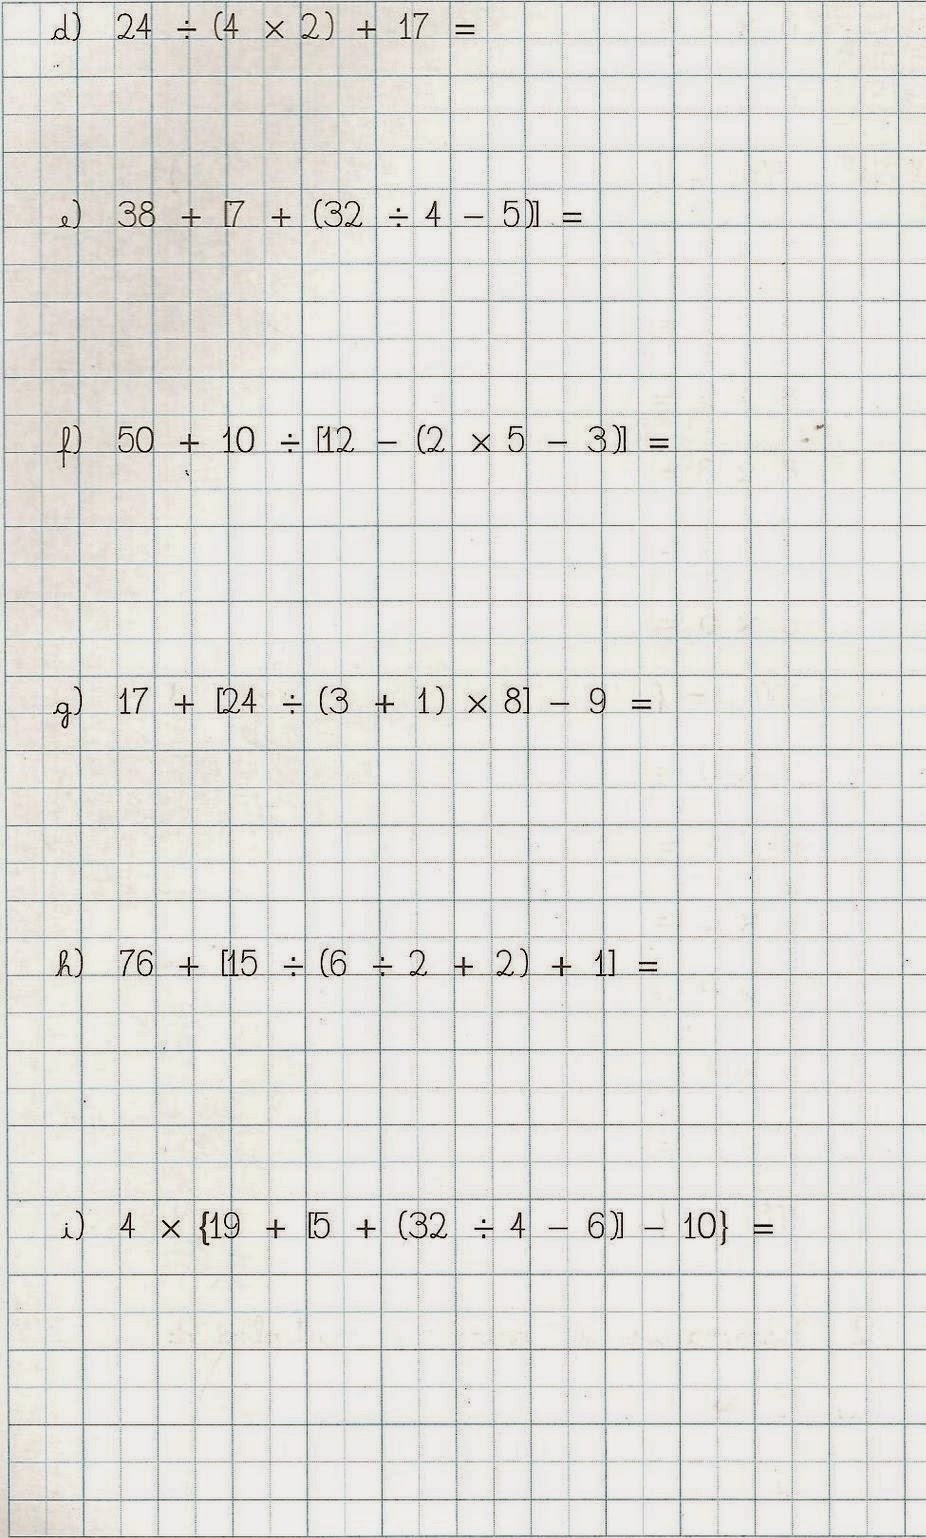 d) 24 ÷ (4 × 2) + 17 =
e) 38 + [7 + (32 ÷ 4 − 5)] =
f) 50 + 10 ÷ [12 − (2 × 5 − 3)] =
g) 17 + [24 ÷ (3 + 1) × 8] − 9 =
h) 76 + [15 ÷ (6 ÷ 2 + 2) + 1] =
i) 4 × {19 + [5 + (32 ÷ 4 − 6)] − 10} =